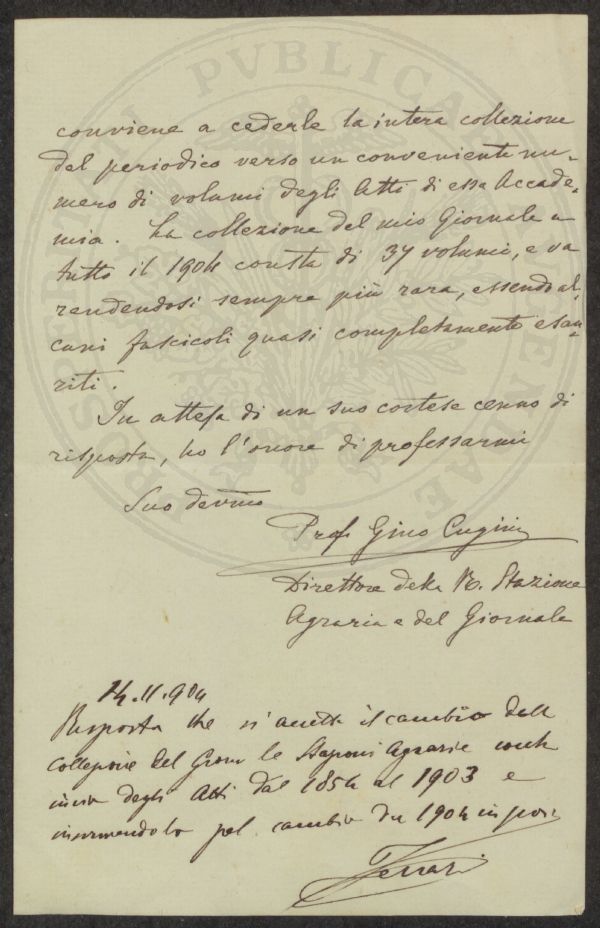 conviene a cederle la intera collezione
del periodico verso un conveniente nu-
mero di volumi degli Atti di essa Accade-
mia. La collezione del mio Giornale a
tutto il 1904 consta di 37 volumi, e va
rendendosi sempre più rara, essendo al-
cuni fascicoli quasi completamente esau-
riti.
In attesa di un suo cortese cenno di
risposta, ho l'onore di professarmi
Suo devmo
Prof. Gino Cugini
Direttore della R. Stazione
Agraria e del Giornale
14.11.904
Risposta che si accetta il cambio della
collezione del Giorn le Stazioni Agrarie
degli Atti dal 1854 al 1903 e
informandolo pel cambio du 1904 in poi
Ferrari
PROSPERITATI PVBLICAE AVGENDAE